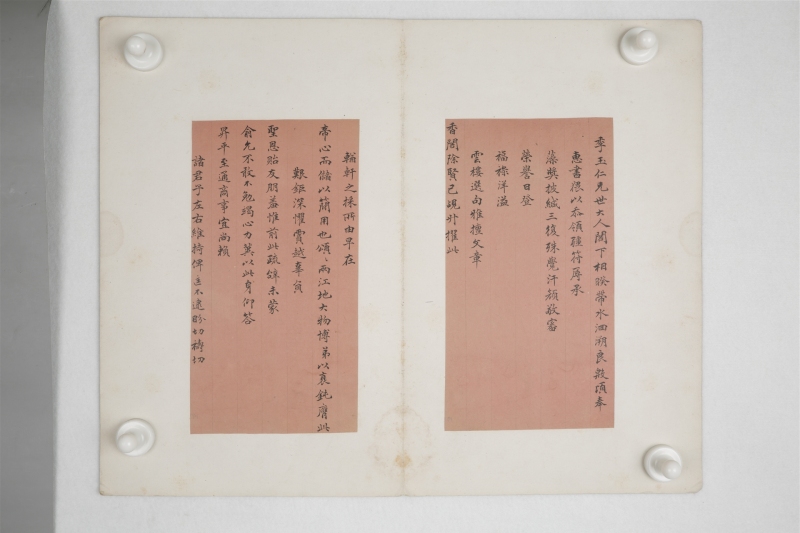 季玉仁兄世大人閣下相睽帶水洄溯良殷頃奉
惠書猥以忝領疆符厚承
藻奬披緘三復殊覺汗顏敬審
榮譽日登
福祿洋溢
雲樓選勝雅擅文章
香閣除賢已覘升擢此
輶軒之採所由早在
帝心而儲以簡用也頌頌兩江地大物博弟以衰鈍膺此
艱鉅深懼霣越辜負
聖恩貽友朋羞惟前此疏辭未蒙
俞允不敢不勉竭心力冀以此身仰答
昇平至通商事宜尚賴
諸君子左右維持俾之不逮盼切禱切